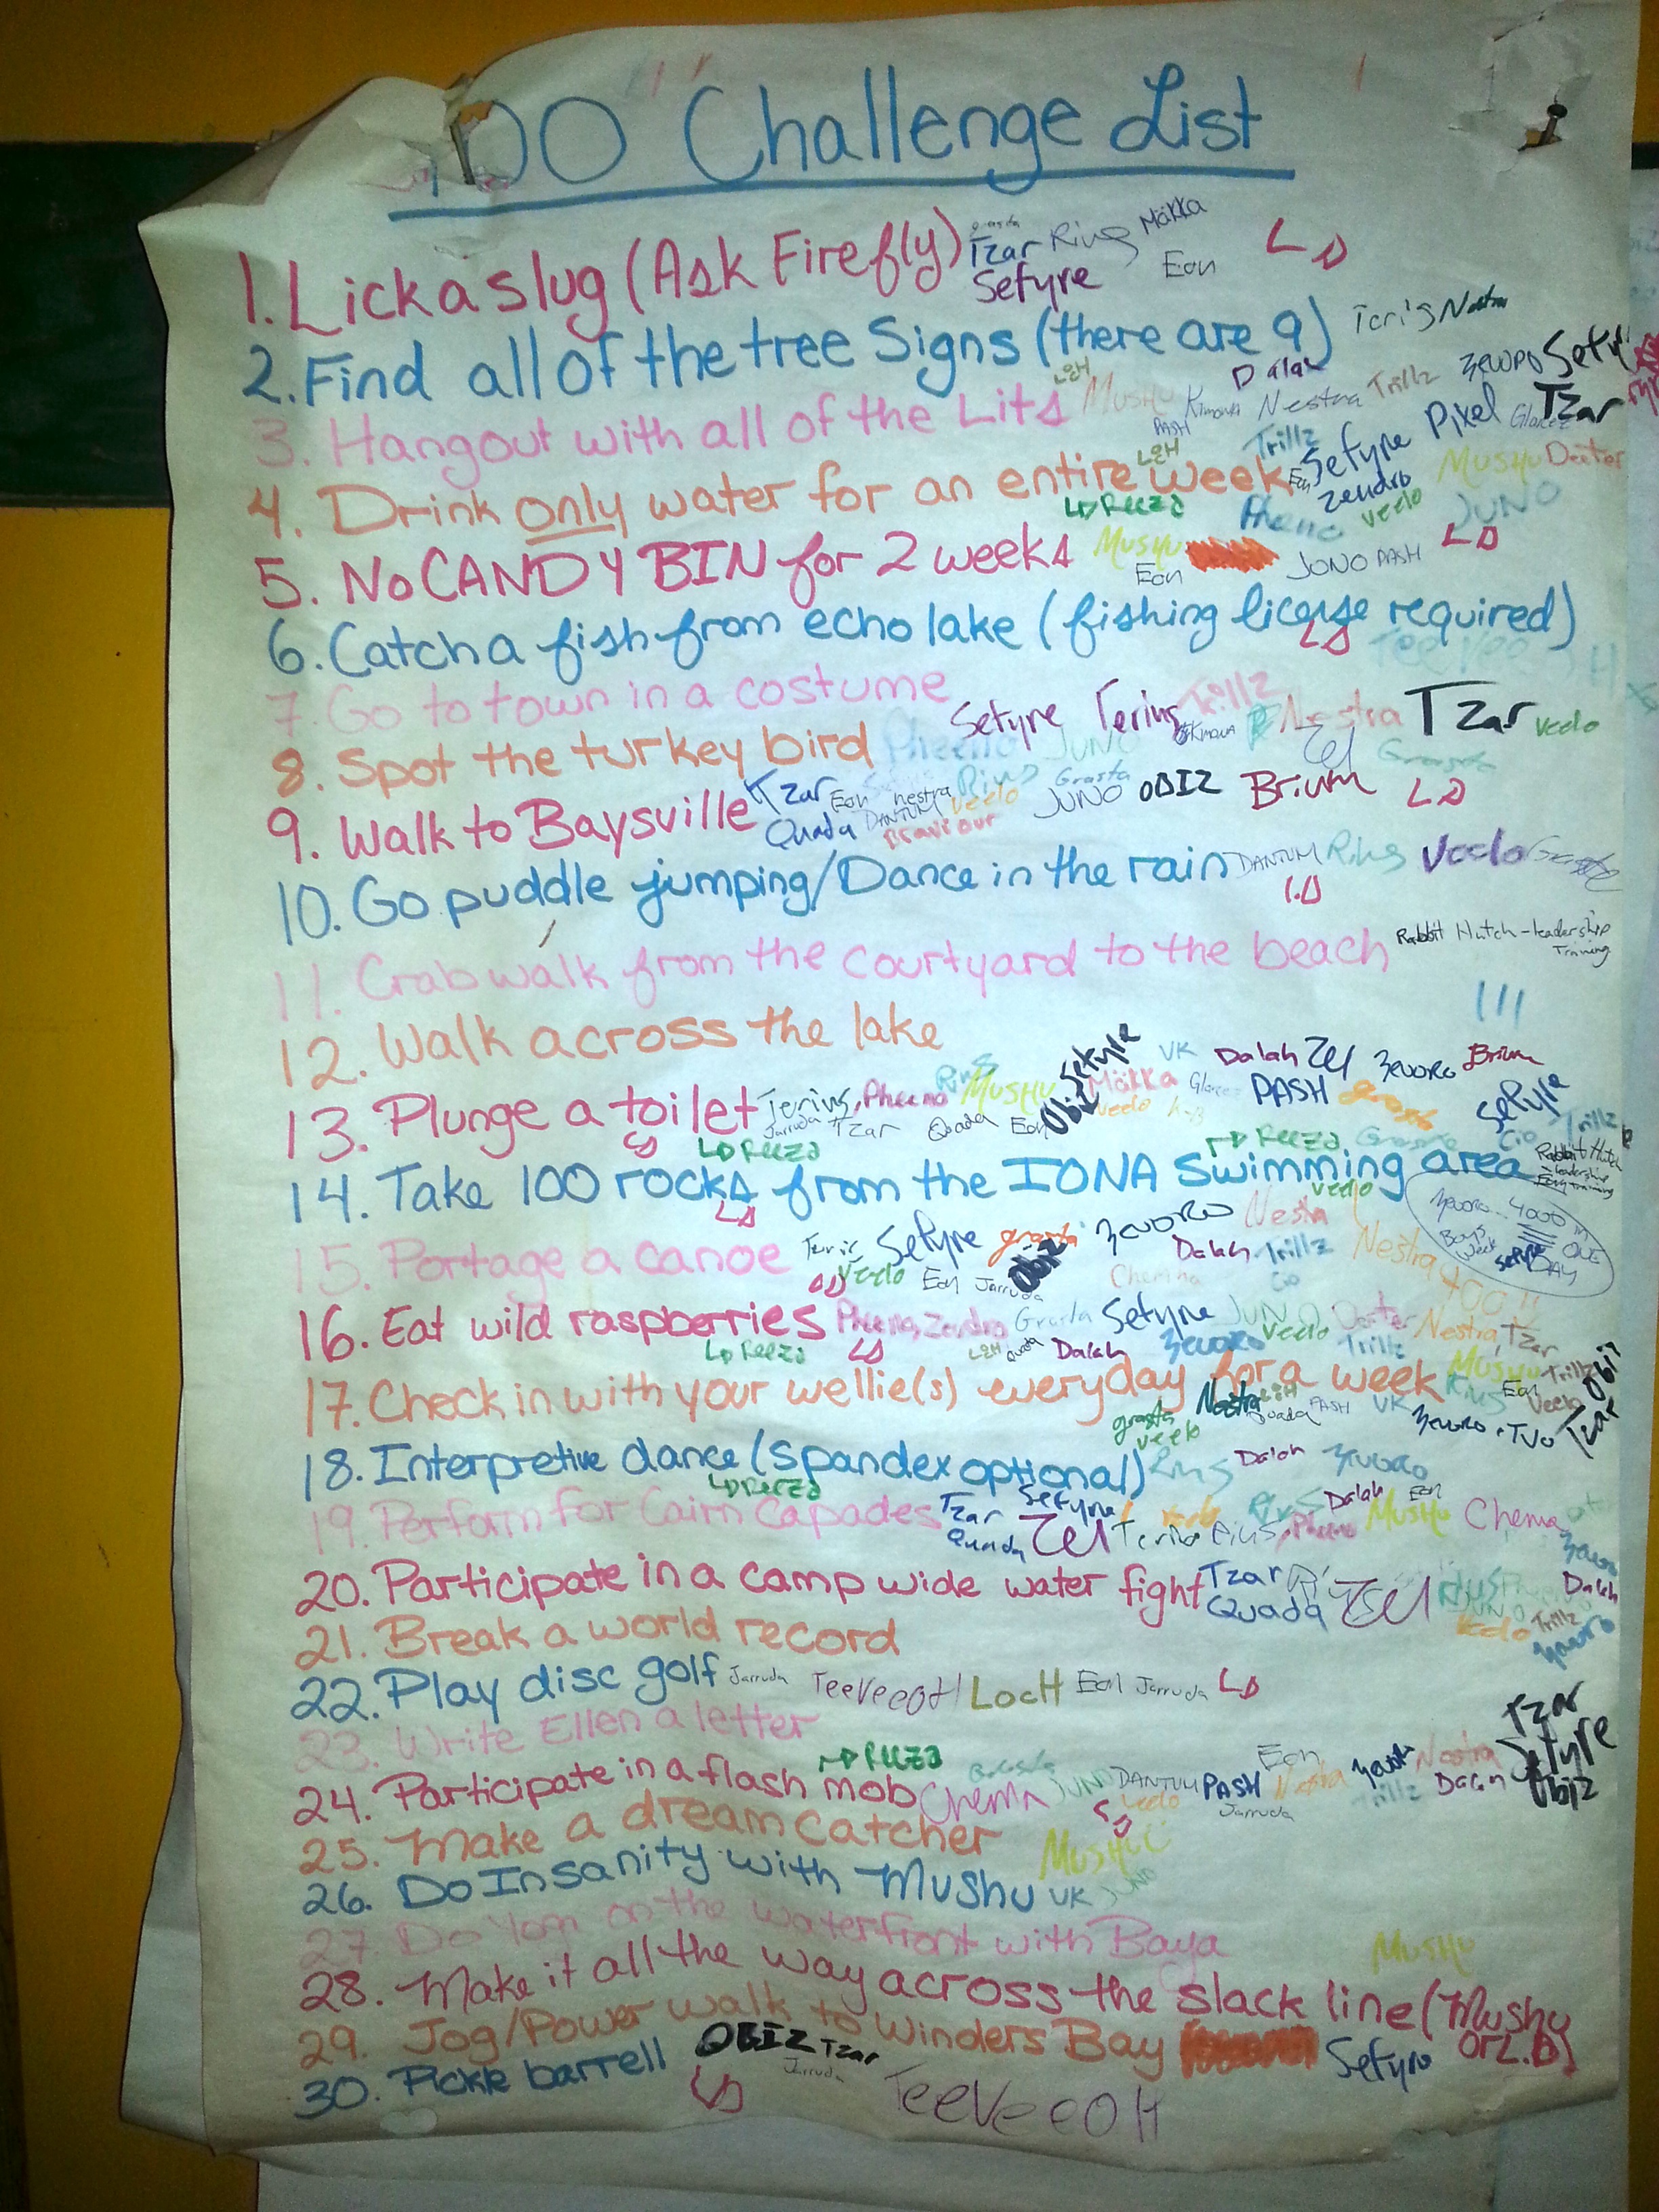 100 Challenge List
1. Lick a slug (Ask Firefly) Tzar Rius Mäkka
Setyre Eon LD
2. Find all of the tree Signs (there are 9) Teris Nestra
3. Hangout with all of the Lits MUSHU Kimowa Nestra Trillz Dalah Setyre
PASH Trillz Pixel Tzar
4. Drink only water for an entire week Eon Setyre Zendro MUSHU Dexter
REEZA Pheeno Veelo JUNO
5. No CANDY BIN for 2 weeks MUSHU Eon JUNO PASH LD
6. Catch a fish from echo lake (fishing license required)
LD TeeVee
7. Go to town in a costume
Setyre Terius Trillz Nestra Tzar Veelo
8. Spot the turkey bird Pheeno JUNO Zel Grasta
9. Walk to Baysville Tzar Eon nestra Rius Grasta JUNO OBIZ Brium LD
Quada DANTUM Veelo
10. Go puddle jumping/Dance in the rain DANTUM Rius Veelo
LD
11. Crab walk from the courtyard to the beach Rabbit Hutch - leadership
Training
12. Walk across the lake
13. Plunge a toilet Terius, Pheeno Rius MUSHU Obiz Setyre VK Dalah Zel Brium
Jarruda Tzar Quada Eon Mäkka Veelo PASH grasta Setyre
LD REEZA REEZA Grasta Cio Trillz
14. Take 100 rocks from the IONA Swimming area Rabbit Hutch
leadership training
LD Veelo 4000 in ONE DAY Boys Week Setyre
15. Portage a canoe Setyre grasta Obiz Nesta
LD Veelo Eon Jarruda Dalah Trillz Nestra 400!!
Cio
16. Eat wild raspberries Pheeno, Zendro Grasta Setyre JUNO Dexter Nestra, Tzar
REEZA LD Quada Dalah Veelo Trillz
17. Check in with your wellie(s) everyday for a week MUSHU Rius Eon Trillz Veelo Obiz
grasta veelo Nestra Quada PASH VK Tzar
18. Interpretive dance (spandex optional) Rius Dalah
REEZA
19. Perform for Cairn Capades Tzar Setyre Veelo Rius Dalah Eon MUSHU Chema
Quada Zel Pheeno
20. Participate in a camp wide water fight Tzar Quada Zel Rius JUNO Dalah
Veelo Trillz
21. Break a world record
22. Play disc golf Jarruda TeeVeeOH LocH Eon Jarruda LD
23. Write Ellen a letter
REEZA
24. Participate in a flash mob Chema JUNO DANTUM PASH Eon Nestra Nestra Dalah Tzar Setyre Obiz
LD Veelo Jarruda Trillz
25. Make a dream catcher MUSHU
26. Do Insanity with Mushu VK JUNO
27. Do Yoga on the waterfront with Baya
MUSHU
28. Make it all the way across the slack line (Mushu
or L.D)
29. Jog/Power walk to Winders Bay Setyre
30. Pickle barrell OBIZ Tzar
LD Jarruda TeeVeeOH